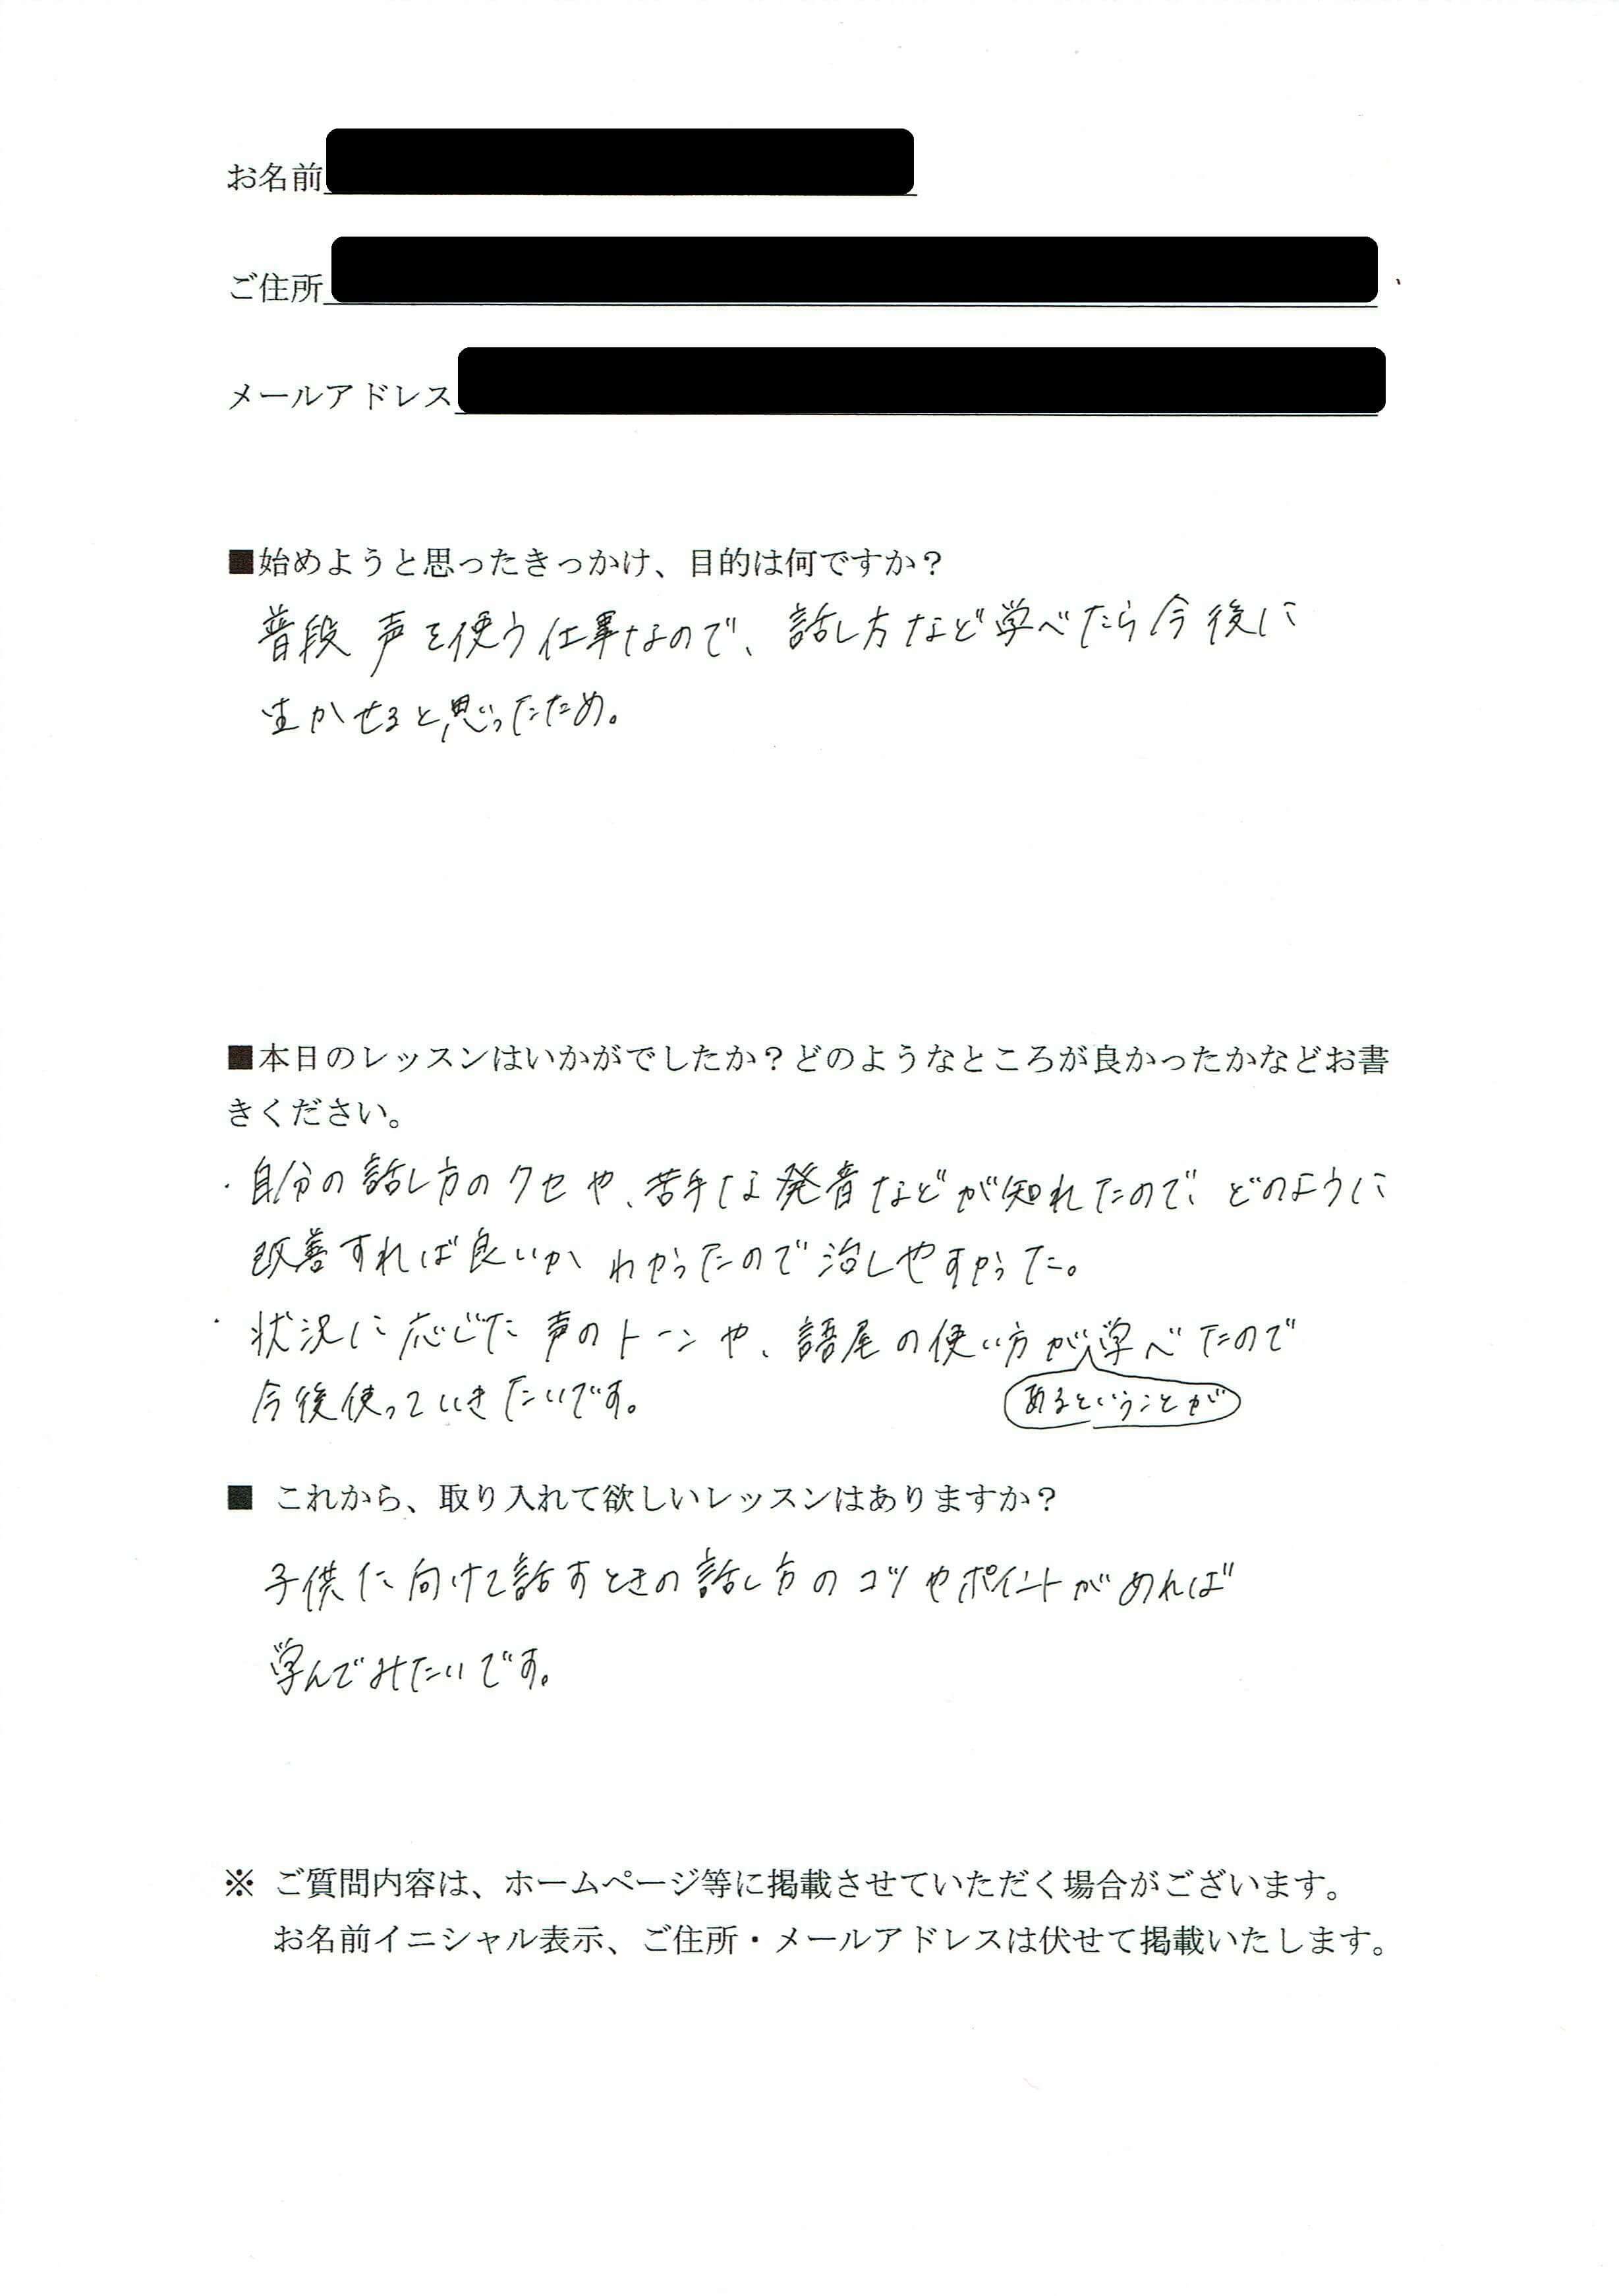 お名前
ご住所
メールアドレス
■始めようと思ったきっかけ、目的は何ですか？
普段 声を使う仕事なので、話し方など学べたら今後に
生かせると思ったため。
■本日のレッスンはいかがでしたか？どのようなところが良かったかなどお書
きください。
・自分の話し方のクセや、苦手な発音などが知れたので、どのように
改善すれば良いか わかったので治しやすかった。
・状況に応じた声のトーンや、語尾の使い方が学べたので
あるということが
今後使っていきたいです。
■ これから、取り入れて欲しいレッスンはありますか？
子供に向けて話すときの話し方のコツやポイントがあれば
学んでみたいです。
※ ご質問内容は、ホームページ等に掲載させていただく場合がございます。
お名前イニシャル表示、ご住所・メールアドレスは伏せて掲載いたします。